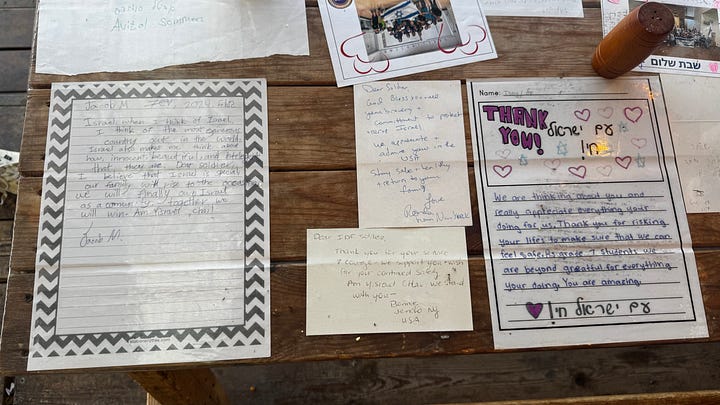 Avizal Sommers
שבת שלום
Jacob M. Zev, 2024, 6th2
Israel when I think of Israel
I think of the most
country out in the world.
Israel also makes me think about
how innocent beautiful and
that they are. Dear soldier,
I believe that Israel is great
our family with rise to the
we will finally
as a community together we
will win. Am Yisrael, chai!
Jacob M.
Dear Soldier,
God Bless you and
your bravery +
commitment to protect
+ serve Israel.
We appreciate +
admire you in the
USA
Stay safe + healthy
+ return to your
family
from New York
Dear IDF soldier,
Thank you for your service
+ courage - we support you + wish
for your continued safety.
Am Yisrael Chai - we stand
with you -
Bonnie
Jericho NY
USA
Name:
THANK
YOU!
עם ישראל
חי!
We are thinking about you and
really appreciate everything your
doing for us. Thank you for risking
your lifes to make sure that we can
feel safe. 7 students we
are beyond greatful for everything
your doing. You are amazing.
עם ישראל חי!